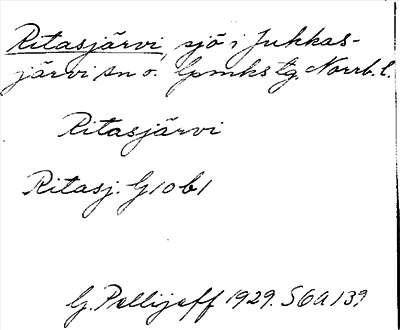 Ritasjärvi, sjö i Jukkas-
järvi sn o. lpmkstg. Norrb. l.
Ritasjärvi
Ritasj. G10b1
G. Pellijeff 1929. S6A139